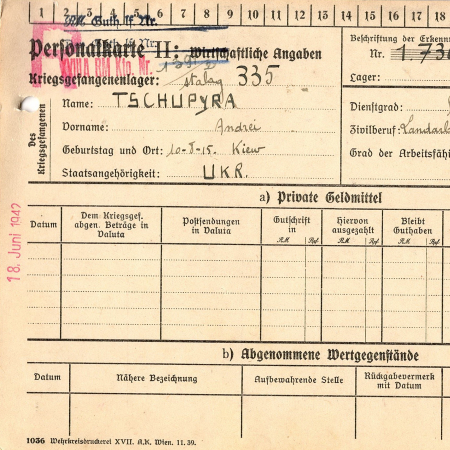 1 2 3 4 5 6 7 8 9 10 11 12 13 14 15 16 17 18
Personalkarte II: Wirtschaftliche Angaben
Kriegsgefangenenlager: Stalag 335
Name: TSCHUPYRA
Vorname: Andrei
Geburtstag und Ort: 10-5-15. Kiew
Staatsangehörigkeit: UKR.
Des Kriegsgefangenen
Beschriftung der Erkenn
Nr. 1.736
Lager:
Dienstgrad:
Zivilberuf: Landarb
Grad der Arbeitsfähi
18. Juni 1942
a) Private Geldmittel
Datum
Dem Kriegsgef. abgen. Beträge in Valuta
Postsendungen in Valuta
Gutschrift in
RM Rpf.
Hiervon ausgezahlt
RM Rpf.
Bleibt Guthaben
RM Rpf.
b) Abgenommene Wertgegenstände
Datum
Nähere Bezeichnung
Aufbewahrende Stelle
Rückgabevermerk mit Datum
1036 Wehrkreisdruckerei XVII. A.K. Wien. 11. 39.